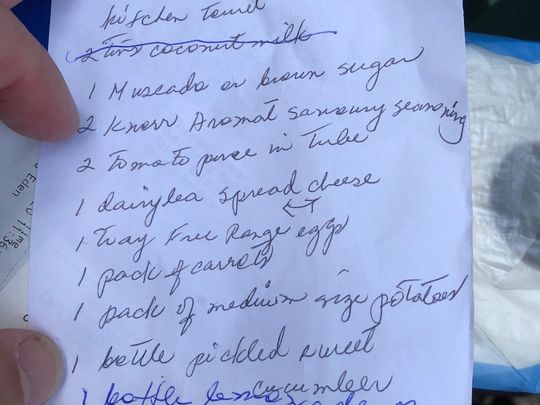 kitchen towel
2 Tins coconut milk
1 Muscado or brown sugar
2 Knorr Aromat Savoury seasoning
2 Tomato puree in Tube
1 dairylea spread cheese
1 tray Free Range eggs
1 pack of carrots
1 pack of medium size potatoes
1 bottle pickled sweet
cucumber
1 bottle
Eden
Time
11:36